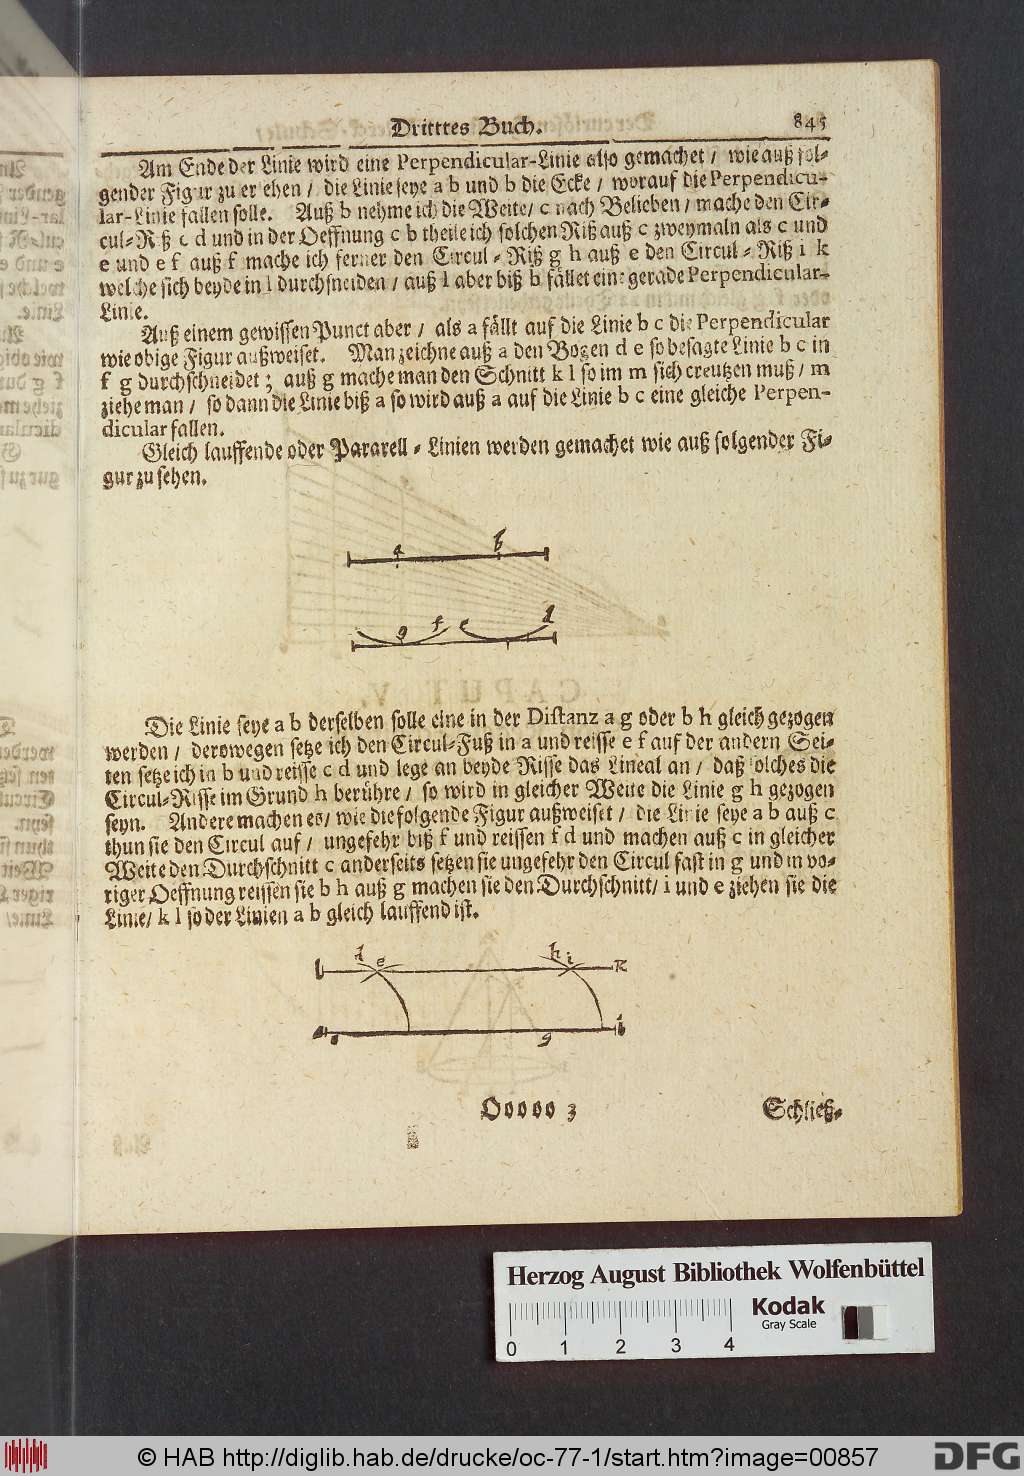 Dritttes Buch. 845
Am Ende der Linie wird eine Perpendicular-Linie also gemachet / wie auß fol-
gender Figur zu ersehen / die Linie seye a b und b die Ecke / worauf die Perpendicu-
lar-Linie fallen solle. Auß b nehme ich die Weite / c nach Belieben / mache den Cir-
cul-Riß c d und in der Oeffnung c b theile ich solchen Riß auß c zweymaln als c und
e und e f auß f mache ich ferner den Circul-Riß g h auß e den Circul-Riß i k
welche sich beyde in l durchsneiden / auß l aber biß b fället eine gerade Perpendicular-
Linie.
Auß einem gewissen Punct aber / als a fällt auf die Linie b c die Perpendicular
wie obige Figur außweiset. Man zeichne auß a den Bogen d e so besagte Linie b c in
f g durchschneidet ; auß g mache man den Schnitt k l so im m sich creutzen muß / m
ziehe man / so dann die Linie biß a so wird auß a auf die Linie b c eine gleiche Perpen-
dicular fallen.
Gleich lauffende oder Pararell-Linien werden gemachet wie auß folgender Fi-
gur zu sehen.
a b
g f e d
Die Linie seye a b derselben solle eine in der Distanz a g oder b h gleich gezogen
werden / derowegen setze ich den Circul-Fuß in a und reisse e f auf der andern Sei-
ten setze ich in b und reisse c d und lege an beyde Risse das Lineal an / daß solches die
Circul-Risse im Grund h berühre / so wird in gleicher Weite die Linie g h gezogen
seyn. Andere machen es / wie die folgende Figur außweiset / die Linie seye a b auß c
thun sie den Circul auf / ungefehr biß f und reissen f d und machen auß c in gleicher
Weite den Durchschnitt c anderseits setzen sie ungefehr den Circul fast in g und in vo-
riger Oeffnung reissen sie b h auß g machen sie den Durchschnitt / i und e ziehen sie die
Linie / k l so der Linien a b gleich lauffend ist.
l d e h i K
a g b
Ooooo 3 Schließ-
Herzog August Bibliothek Wolfenbüttel
Kodak
Gray Scale
0 1 2 3 4
© HAB http://diglib.hab.de/drucke/oc-77-1/start.htm?image=00857
DFG